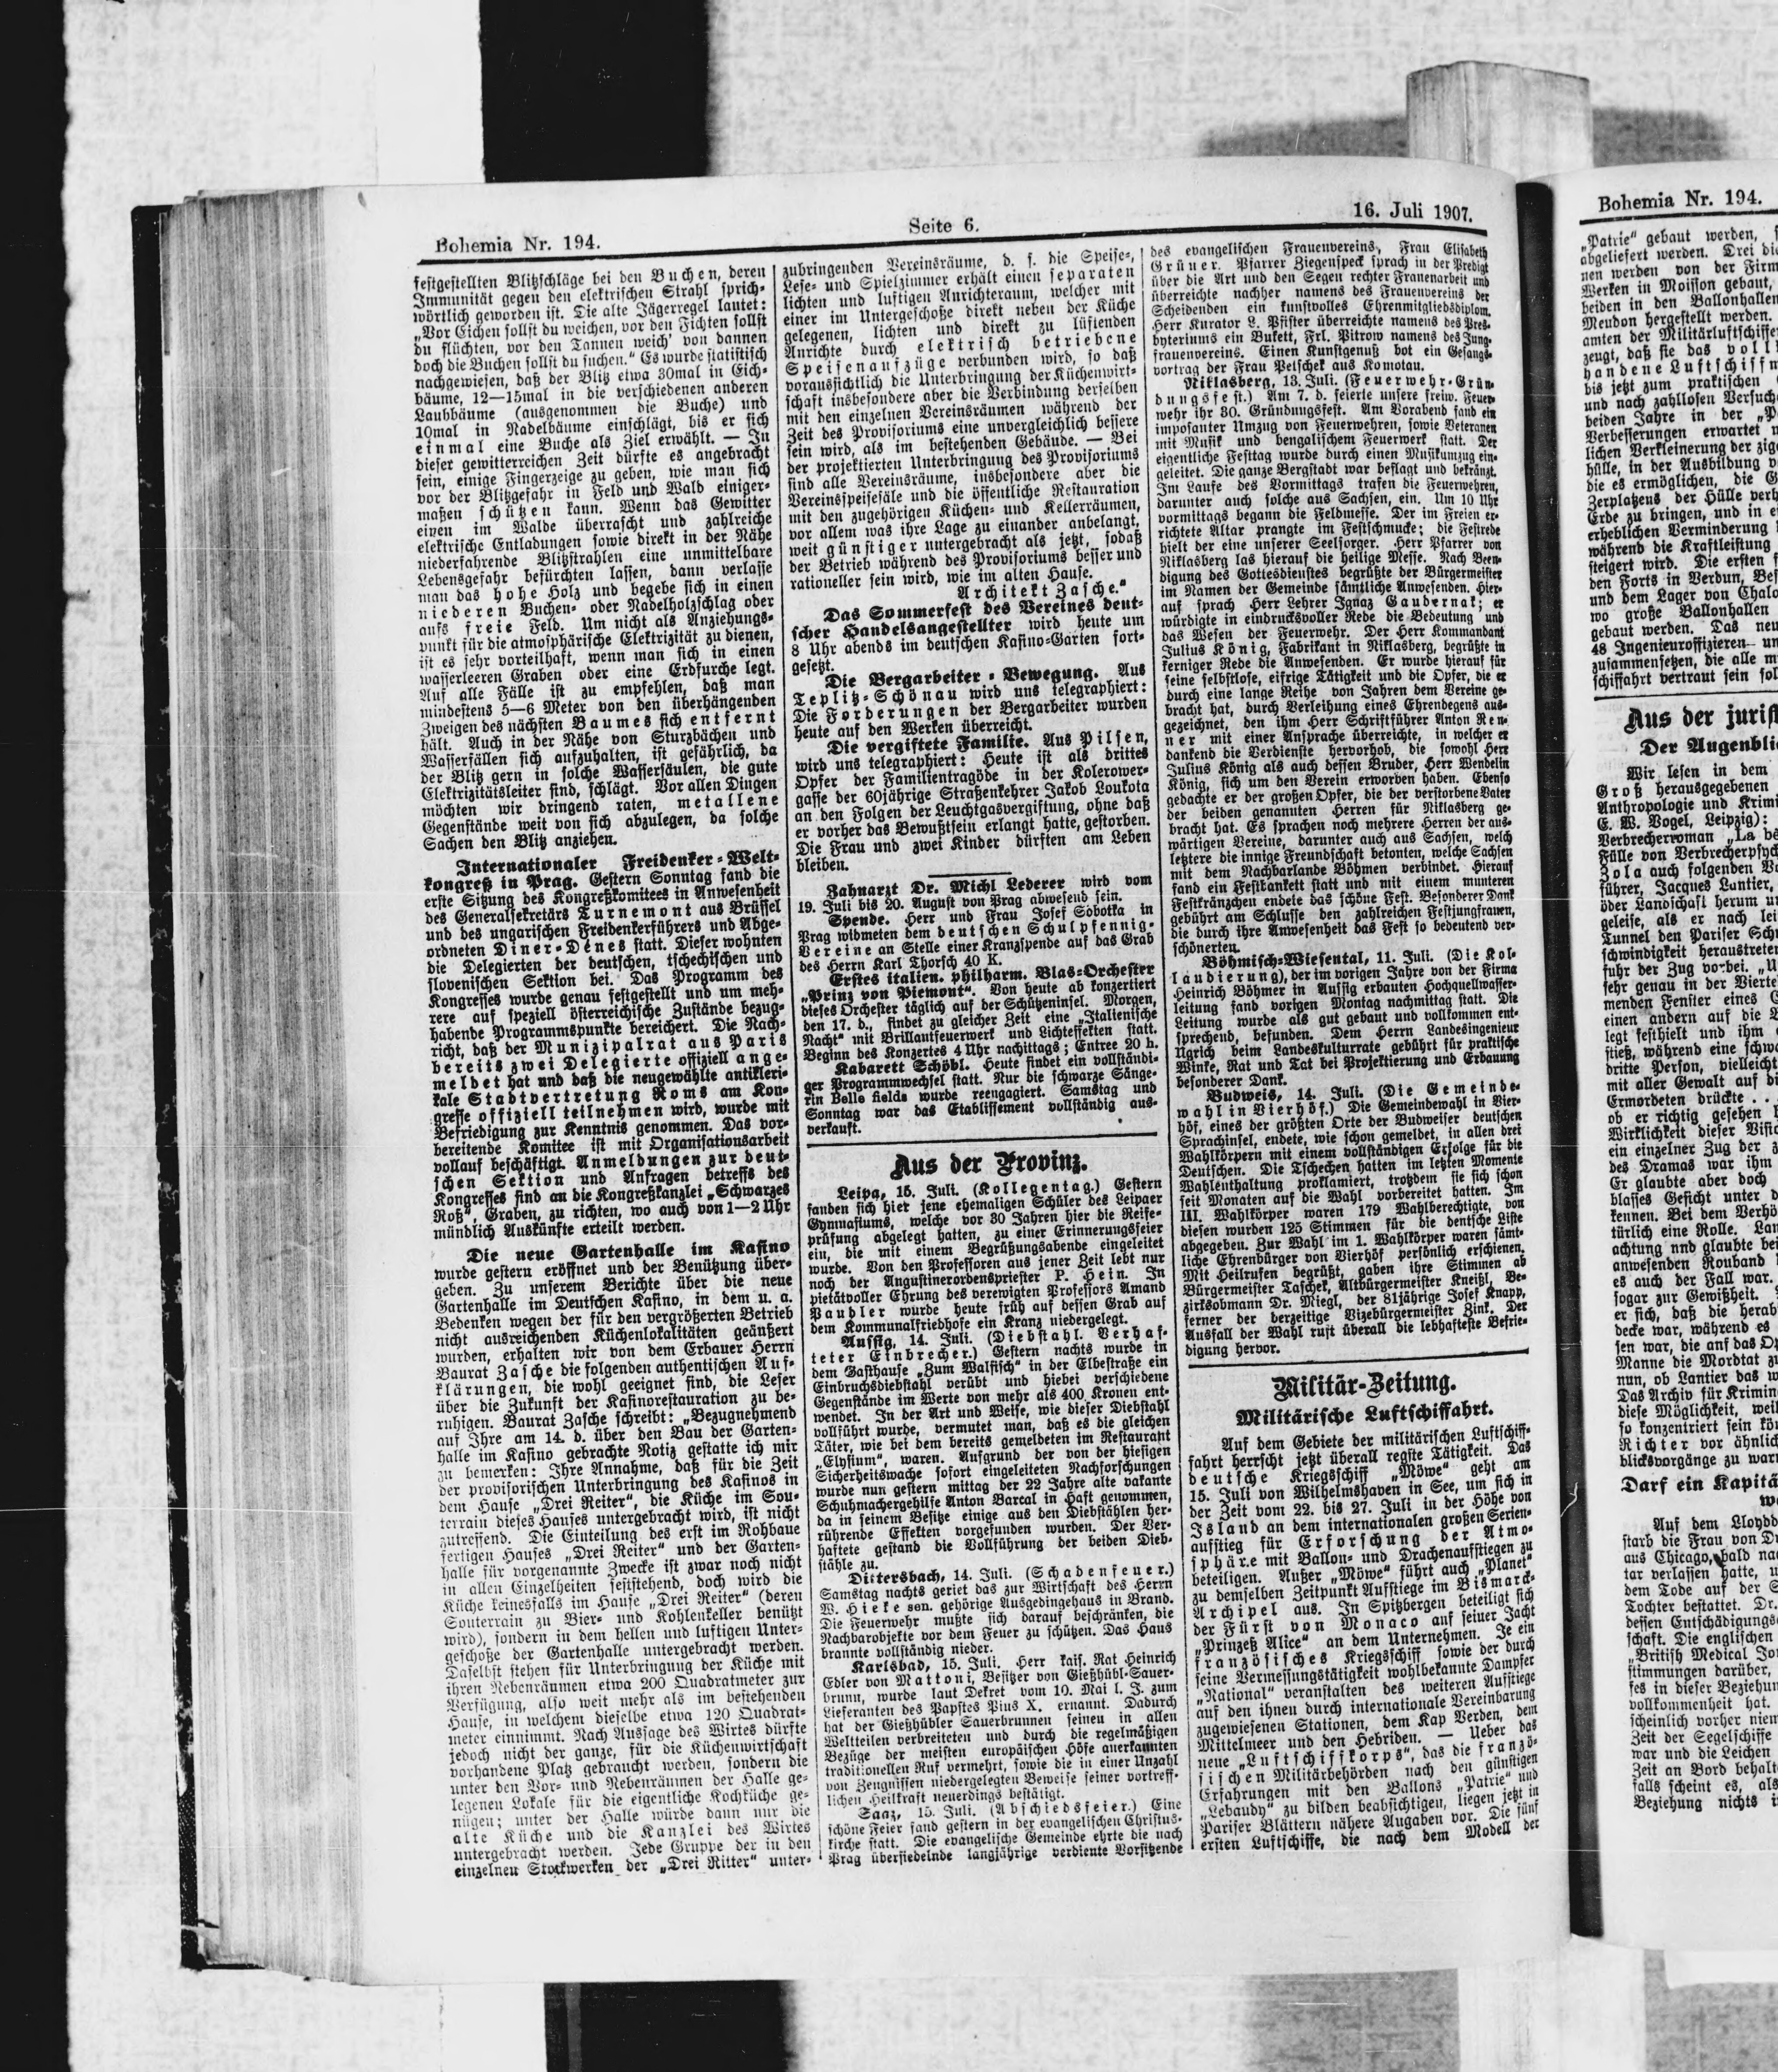 Bohemia Nr. 194.
Seite 6.
16. Juli 1907.
festgestellten Blitzschläge bei den Buchen, deren
Immunität gegen den elektrischen Strahl sprich-
wörtlich geworden ist. Die alte Jägerregel lautet:
„Vor Eichen sollst du weichen, vor den Fichten sollst
du flüchten, vor den Tannen weich' von dannen
doch die Buchen sollst du suchen.“ Es wurde statistisch
nachgewiesen, daß der Blitz etwa 30mal in Eich-
bäume, 12—15mal in die verschiedenen anderen
Laubbäume (ausgenommen die Buche) und
10mal in Nadelbäume einschlägt, bis er sich
einmal eine Buche als Ziel erwählt. — In
dieser gewitterreichen Zeit dürfte es angebracht
sein, einige Fingerzeige zu geben, wie man sich
vor der Blitzgefahr in Feld und Wald einiger-
maßen schützen kann. Wenn das Gewitter
einen im Walde überrascht und zahlreiche
elektrische Entladungen sowie direkt in der Nähe
niederfahrende Blitzstrahlen eine unmittelbare
Lebensgefahr befürchten lassen, dann verlasse
man das hohe Holz und begebe sich in einen
niederen Buchen- oder Nadelholzschlag oder
aufs freie Feld. Um nicht als Anziehungs-
punkt für die atmosphärische Elektrizität zu dienen,
ist es sehr vorteilhaft, wenn man sich in einen
wasserleeren Graben oder eine Erdfurche legt.
Auf alle Fälle ist zu empfehlen, daß man
mindestens 5—6 Meter von den überhängenden
Zweigen des nächsten Baumes sich entfernt
hält. Auch in der Nähe von Sturzbächen und
Wasserfällen sich aufzuhalten, ist gefährlich, da
der Blitz gern in solche Wassersäulen, die gute
Elektrizitätsleiter sind, schlägt. Vor allen Dingen
möchten wir dringend raten, metallene
Gegenstände weit von sich abzulegen, da solche
Sachen den Blitz anziehen.
Internationaler Freidenker-Welt-
kongreß in Prag. Gestern Sonntag fand die
erste Sitzung des Kongreßkomitees in Anwesenheit
des Generalsekretärs Turnemont aus Brüssel
und des ungarischen Freidenkerführers und Abge-
ordneten Diner-Dénes statt. Dieser wohnten
die Delegierten der deutschen, tschechischen und
slovenischen Sektion bei. Das Programm des
Kongresses wurde genau festgestellt und um meh-
rere auf speziell österreichische Zustände bezug-
habende Programmspunkte bereichert. Die Nach-
richt, daß der Munizipalrat aus Paris
bereits zwei Delegierte offiziell ange-
meldet hat und daß die neugewählte antikleri-
kale Stadtvertretung Roms am Kon-
gresse offiziell teilnehmen wird, wurde mit
Befriedigung zur Kenntnis genommen. Das vor-
bereitende Komitee ist mit Organisationsarbeit
vollauf beschäftigt. Anmeldungen zur deut-
schen Sektion und Anfragen betreffs des
Kongresses sind an die Kongreßkanzlei „Schwarzes
Roß“, Graben, zu richten, wo auch von 1—2 Uhr
mündlich Auskünfte erteilt werden.
Die neue Gartenhalle im Kasino
wurde gestern eröffnet und der Benützung über-
geben. Zu unserem Berichte über die neue
Gartenhalle im Deutschen Kasino, in dem u. a.
Bedenken wegen der für den vergrößerten Betrieb
nicht ausreichenden Küchenlokalitäten geäußert
wurden, erhalten wir von dem Erbauer Herrn
Baurat Zasche die folgenden authentischen Auf-
klärungen, die wohl geeignet sind, die Leser
über die Zukunft der Kasinorestauration zu be-
ruhigen. Baurat Zasche schreibt: „Bezugnehmend
auf Ihre am 14. d. über den Bau der Garten-
halle im Kasino gebrachte Notiz gestatte ich mir
zu bemerken: Ihre Annahme, daß für die Zeit
der provisorischen Unterbringung des Kasinos in
dem Hause „Drei Reiter“, die Küche im Sou-
terrain dieses Hauses untergebracht wird, ist nicht
zutreffend. Die Einteilung des erst im Rohbaue
fertigen Hauses „Drei Reiter“ und der Garten-
halle für vorgenannte Zwecke ist zwar noch nicht
in allen Einzelheiten feststehend, doch wird die
Küche keinesfalls im Hause „Drei Reiter“ (deren
Souterrain zu Bier- und Kohlenkeller benützt
wird), sondern in dem hellen und luftigen Unter-
geschoße der Gartenhalle untergebracht werden.
Daselbst stehen für Unterbringung der Küche mit
ihren Nebenräumen etwa 200 Quadratmeter zur
Verfügung, also weit mehr als im bestehenden
Hause, in welchem dieselbe etwa 120 Quadrat-
meter einnimmt. Nach Aussage des Wirtes dürfte
jedoch nicht der ganze, für die Küchenwirtschaft
vorhandene Platz gebraucht werden, sondern die
unter den Vor- und Nebenräumen der Halle ge-
legenen Lokale für die eigentliche Kochküche ge-
nügen; unter der Halle würde dann nur die
alte Küche und die Kanzlei des Wirtes
untergebracht werden. Jede Gruppe der in den
einzelnen Stockwerken der „Drei Ritter“ unter-
zubringenden Vereinsräume, d. s. die Speise-,
Lese- und Spielzimmer erhält einen separaten
lichten und luftigen Anrichteraum, welcher mit
einer im Untergeschoße direkt neben der Küche
gelegenen, lichten und direkt zu lüftenden
Anrichte durch elektrisch betriebene
Speisenaufzüge verbunden wird, so daß
voraussichtlich die Unterbringung der Küchenwirt-
schaft insbesondere aber die Verbindung derselben
mit den einzelnen Vereinsräumen während der
Zeit des Provisoriums eine unvergleichlich bessere
sein wird, als im bestehenden Gebäude. — Bei
der projektierten Unterbringung des Provisoriums
sind alle Vereinsräume, insbesondere aber die
Vereinsspeisesäle und die öffentliche Restauration
mit den zugehörigen Küchen- und Kellerräumen,
vor allem was ihre Lage zu einander anbelangt,
weit günstiger untergebracht als jetzt, sodaß
der Betrieb während des Provisoriums besser und
rationeller sein wird, wie im alten Hause.
Architekt Zasche.“
Das Sommerfest des Vereines deut-
scher Handelsangestellter wird heute um
8 Uhr abends im deutschen Kasino-Garten fort-
gesetzt.
Die Bergarbeiter-Bewegung. Aus
Teplitz-Schönau wird uns telegraphiert:
Die Forderungen der Bergarbeiter wurden
heute auf den Werken überreicht.
Die vergiftete Familie. Aus Pilsen,
wird uns telegraphiert: Heute ist als drittes
Opfer der Familientragöde in der Kolerower-
gasse der 60jährige Straßenkehrer Jakob Loukota
an den Folgen der Leuchtgasvergiftung, ohne daß
er vorher das Bewußtsein erlangt hatte, gestorben.
Die Frau und zwei Kinder dürften am Leben
bleiben.
Zahnarzt Dr. Michl Lederer wird vom
19. Juli bis 20. August von Prag abwesend sein.
Spende. Herr und Frau Josef Sobotka in
Prag widmeten dem deutschen Schulpfennig-
Vereine an Stelle einer Kranzspende auf das Grab
des Herrn Karl Thorsch 40 K.
Erstes italien. philharm. Blas-Orchester
„Prinz von Piemont“. Von heute ab konzertiert
dieses Orchester täglich auf der Schützeninsel. Morgen,
den 17. d., findet zu gleicher Zeit eine „Italienische
Nacht“ mit Brillantfeuerwerk und Lichteffekten statt.
Beginn des Konzertes 4 Uhr nachittags; Entree 20 h.
Kabarett Schöbl. Heute findet ein vollständi-
ger Programmwechsel statt. Nur die schwarze Sänge-
rin Belle fields wurde reengagiert. Samstag und
Sonntag war das Etablissement vollständig aus-
verkauft.
Aus der Provinz.
Leipa, 15. Juli. (Kollegentag.) Gestern
fanden sich hier jene ehemaligen Schüler des Leipaer
Gymnasiums, welche vor 30 Jahren hier die Reife-
prüfung abgelegt hatten, zu einer Erinnerungsfeier
ein, die mit einem Begrüßungsabende eingeleitet
wurde. Von den Professoren aus jener Zeit lebt nur
noch der Augustinerordenspriester P. Hein. In
pietätvoller Ehrung des verewigten Professors Amand
Paudler wurde heute früh auf dessen Grab auf
dem Kommunalfriedhofe ein Kranz niedergelegt.
Aussig, 14. Juli. (Diebstahl. Verhaf-
teter Einbrecher.) Gestern nachts wurde in
dem Gasthause „Zum Walfisch“ in der Elbestraße ein
Einbruchsdiebstahl verübt und hiebei verschiedene
Gegenstände im Werte von mehr als 400 Kronen ent-
wendet. In der Art und Weise, wie dieser Diebstahl
vollführt wurde, vermutet man, daß es die gleichen
Täter, wie bei dem bereits gemeldeten im Restaurant
„Elysium“, waren. Aufgrund der von der hiesigen
Sicherheitswache sofort eingeleiteten Nachforschungen
wurde nun gestern mittag der 22 Jahre alte vakante
Schuhmachergehilfe Anton Barcal in Haft genommen,
da in seinem Besitze einige aus den Diebstählen her-
rührende Effekten vorgefunden wurden. Der Ver-
haftete gestand die Vollführung der beiden Dieb-
stähle zu.
Dittersbach, 14. Juli. (Schadenfeuer.)
Samstag nachts geriet das zur Wirtschaft des Herrn
W. Hieke sen. gehörige Ausgedingehaus in Brand.
Die Feuerwehr mußte sich darauf beschränken, die
Nachbarobjekte vor dem Feuer zu schützen. Das Haus
brannte vollständig nieder.
Karlsbad, 15. Juli. Herr kais. Rat Heinrich
Edler von Mattoni, Besitzer von Gießhübl-Sauer-
brunn, wurde laut Dekret vom 10. Mai l. J. zum
Lieferanten des Papstes Pius X. ernannt. Dadurch
hat der Gießhübler Sauerbrunnen seinen in allen
Weltteilen verbreiteten und durch die regelmäßigen
Bezüge der meisten europäischen Höfe anerkannten
traditionellen Ruf vermehrt, sowie die in einer Unzahl
von Zeugnissen niedergelegten Beweise seiner vortreff-
lichen Heilkraft neuerdings bestätigt.
Saaz, 15. Juli. (Abschiedsfeier.) Eine
schöne Feier fand gestern in der evangelischen Christus-
kirche statt. Die evangelische Gemeinde ehrte die nach
Prag übersiedelnde langjährige verdiente Vorsitzende
des evangelischen Frauenvereins, Frau Elisabeth
Grüner. Pfarrer Ziegenspeck sprach in der Predigt
über die Art und den Segen rechter Frauenarbeit und
überreichte nachher namens des Frauenvereins der
Scheidenden ein kunstvolles Ehrenmitgliedsdiplom.
Herr Kurator L. Pfister überreichte namens des Pres-
byteriums ein Bukett, Frl. Pitrow namens des Jung-
frauenvereins. Einen Kunstgenuß bot ein Gesangs-
vortrag der Frau Pelschek aus Komotau.
Niklasberg, 13. Juli. (Feuerwehr-Grün-
dungsfest.) Am 7. d. feierte unsere freiw. Feuer-
wehr ihr 30. Gründungsfest. Am Vorabend fand ein
imposanter Umzug von Feuerwehren, sowie Veteranen
mit Musik und bengalischem Feuerwerk statt. Der
eigentliche Festtag wurde durch einen Musikumzug ein-
geleitet. Die ganze Bergstadt war beflagt und bekränzt.
Im Laufe des Vormittags trafen die Feuerwehren,
darunter auch solche aus Sachsen, ein. Um 10 Uhr
vormittags begann die Feldmesse. Der im Freien er-
richtete Altar prangte im Festschmucke; die Festrede
hielt der eine unserer Seelsorger. Herr Pfarrer von
Niklasberg las hierauf die heilige Messe. Nach Been-
digung des Gottesdienstes begrüßte der Bürgermeister
im Namen der Gemeinde sämtliche Anwesenden. Hier-
auf sprach Herr Lehrer Ignaz Gaudernak; er
würdigte in eindrucksvoller Rede die Bedeutung und
das Wesen der Feuerwehr. Der Herr Kommandant
Julius König, Fabrikant in Niklasberg, begrüßte in
kerniger Rede die Anwesenden. Er wurde hierauf für
seine selbstlose, eifrige Tätigkeit und die Opfer, die er
durch eine lange Reihe von Jahren dem Vereine ge-
bracht hat, durch Verleihung eines Ehrendegens aus-
gezeichnet, den ihm Herr Schriftführer Anton Ren-
ner mit einer Ansprache überreichte, in welcher er
dankend die Verdienste hervorhob, die sowohl Herr
Julius König als auch dessen Bruder, Herr Wendelin
König, sich um den Verein erworben haben. Ebenso
gedachte er der großen Opfer, die der verstorbene Vater
der beiden genannten Herren für Niklasberg ge-
bracht hat. Es sprachen noch mehrere Herren der aus-
wärtigen Vereine, darunter auch aus Sachsen, welch
letztere die innige Freundschaft betonten, welche Sachsen
mit dem Nachbarlande Böhmen verbindet. Hierauf
fand ein Festbankett statt und mit einem munteren
Festkränzchen endete das schöne Fest. Besonderer Dank
gebührt am Schlusse den zahlreichen Festjungfrauen,
die durch ihre Anwesenheit das Fest so bedeutend ver-
schönerten.
Böhmisch-Wiesental, 11. Juli. (Die Kol-
laudierung), der im vorigen Jahre von der Firma
Heinrich Böhmer in Aussig erbauten Hochquellwasser-
leitung fand vorigen Montag nachmittag statt. Die
Leitung wurde als gut gebaut und vollkommen ent-
sprechend, befunden. Dem Herrn Landesingenieur
Ugrich beim Landeskulturrate gebührt für praktische
Winke, Rat und Tat bei Projektierung und Erbauung
besonderer Dank.
Budweis, 14. Juli. (Die Gemeinde-
wahl in Vierhöf.) Die Gemeindewahl in Vier-
höf, eines der größten Orte der Budweiser deutschen
Sprachinsel, endete, wie schon gemeldet, in allen drei
Wahlkörpern mit einem vollständigen Erfolge für die
Deutschen. Die Tschechen hatten im letzten Momente
Wahlenthaltung proklamiert, trotzdem sie sich schon
seit Monaten auf die Wahl vorbereitet hatten. Im
III. Wahlkörper waren 179 Wahlberechtigte, von
diesen wurden 125 Stimmen für die deutsche Liste
abgegeben. Zur Wahl im 1. Wahlkörper waren sämt-
liche Ehrenbürger von Vierhöf persönlich erschienen.
Mit Heilrufen begrüßt, gaben ihre Stimmen ab
Bürgermeister Taschek, Altbürgermeister Kneißl, Be-
zirksobmann Dr. Miegl, der 81jährige Josef Knapp,
ferner der derzeitige Vizebürgermeister Zink. Der
Ausfall der Wahl ruft überall die lebhafteste Befrie-
digung hervor.
Militär-Zeitung.
Militärische Luftschiffahrt.
Auf dem Gebiete der militärischen Luftschiff-
fahrt herrscht jetzt überall regste Tätigkeit. Das
deutsche Kriegsschiff „Möwe“ geht am
15. Juli von Wilhelmshaven in See, um sich in
der Zeit vom 22. bis 27. Juli in der Höhe von
Island an dem internationalen großen Serien-
aufstieg für Erforschung der Atmo-
sphäre mit Ballon- und Drachenaufstiegen zu
beteiligen. Außer „Möwe“ führt auch „Planet“
zu demselben Zeitpunkt Aufstiege im Bismarck-
Archipel aus. In Spitzbergen beteiligt sich
der Fürst von Monaco auf seiner Jacht
„Prinzeß Alice“ an dem Unternehmen. Je ein
französisches Kriegsschiff sowie der durch
seine Vermessungstätigkeit wohlbekannte Dampfer
„National“ veranstalten des weiteren Aufstiege
auf den ihnen durch internationale Vereinbarung
zugewiesenen Stationen, dem Kap Verden, dem
Mittelmeer und den Hebriden. — Ueber das
neue „Luftschiffkorps“, das die franzö-
sischen Militärbehörden nach den günstigen
Erfahrungen mit den Ballons „Patrie“ und
„Lebaudy“ zu bilden beabsichtigen, liegen jetzt in
Pariser Blättern nähere Angaben vor. Die fünf
ersten Luftschiffe, die nach dem Modell der
Bohemia Nr. 194.
„Patrie“ gebaut werden,
abgeliefert werden. Drei
nen werden von der Firm
Werken in Moisson gebaut,
beiden in den Ballonhallen
Meudon hergestellt werden.
amten der Militärluftschiffe
zeugt, daß sie das voll
handene Luftschiff
bis jetzt zum praktischen
und nach zahllosen Versuch
beiden Jahre in der „P
Verbesserungen erwartet
lichen Verkleinerung der
hülle, in der Ausbildung
die es ermöglichen, die
Zerplatzens der Hülle
Erde zu bringen, und in
erheblichen Verminderung
während die Kraftleistung
steigert wird. Die ersten
den Forts in Verdun,
und dem Lager von
wo große Ballonhallen
gebaut werden. Das
48 Ingenieuroffizieren
zusammensetzen, die alle
schiffahrt vertraut sein
Aus der
Der
Wir lesen in dem
Groß herausgegebenen
Anthropologie und
E. W. Vogel, Leipzig):
Verbrecherroman „La
Fälle von
Zola auch folgenden
führer, Jacques Lantier,
öder Landschaft herum
geleise, als er nach
Tunnel den Pariser
schwindigkeit heraustreten
fuhr der Zug vorbei.
sehr genau in der
menden Fenster eines
einen andern auf die
legt festhielt und ihm
stieß, während eine
dritte Person, vielleicht
mit aller Gewalt auf
Ermordeten drückte . .
ob er richtig gesehen
Wirklichkeit dieser
ein einzelner Zug der
des Dramas war ihm
Er glaubte aber doch
blasses Gesicht unter
kennen. Bei dem
türlich eine Rolle.
achtung nnd glaubte
anwesenden Rouband
es auch der Fall war.
sogar zur Gewißheit.
er sich, daß die
decke war, während es
sen war, die auf das
Manne die Mordtat
nun, ob Lantier das
Das Archiv für
diese Möglichkeit, weil
so konzentriert sein
Richter vor
blicksvorgänge zu
Darf ein
Auf dem
starb die Frau von
aus Chicago, bald
tar verlassen hatte,
dem Tode auf der
Tochter bestattet. Dr.
dessen
schaft. Die englischen
„British Medical
stimmungen darüber,
ses in dieser
vollkommenheit hat.
scheinlich vorher
Zeit der Segelschiffe
war und die Leichen
Zeit an Bord
falls scheint es, als
Beziehung nichts